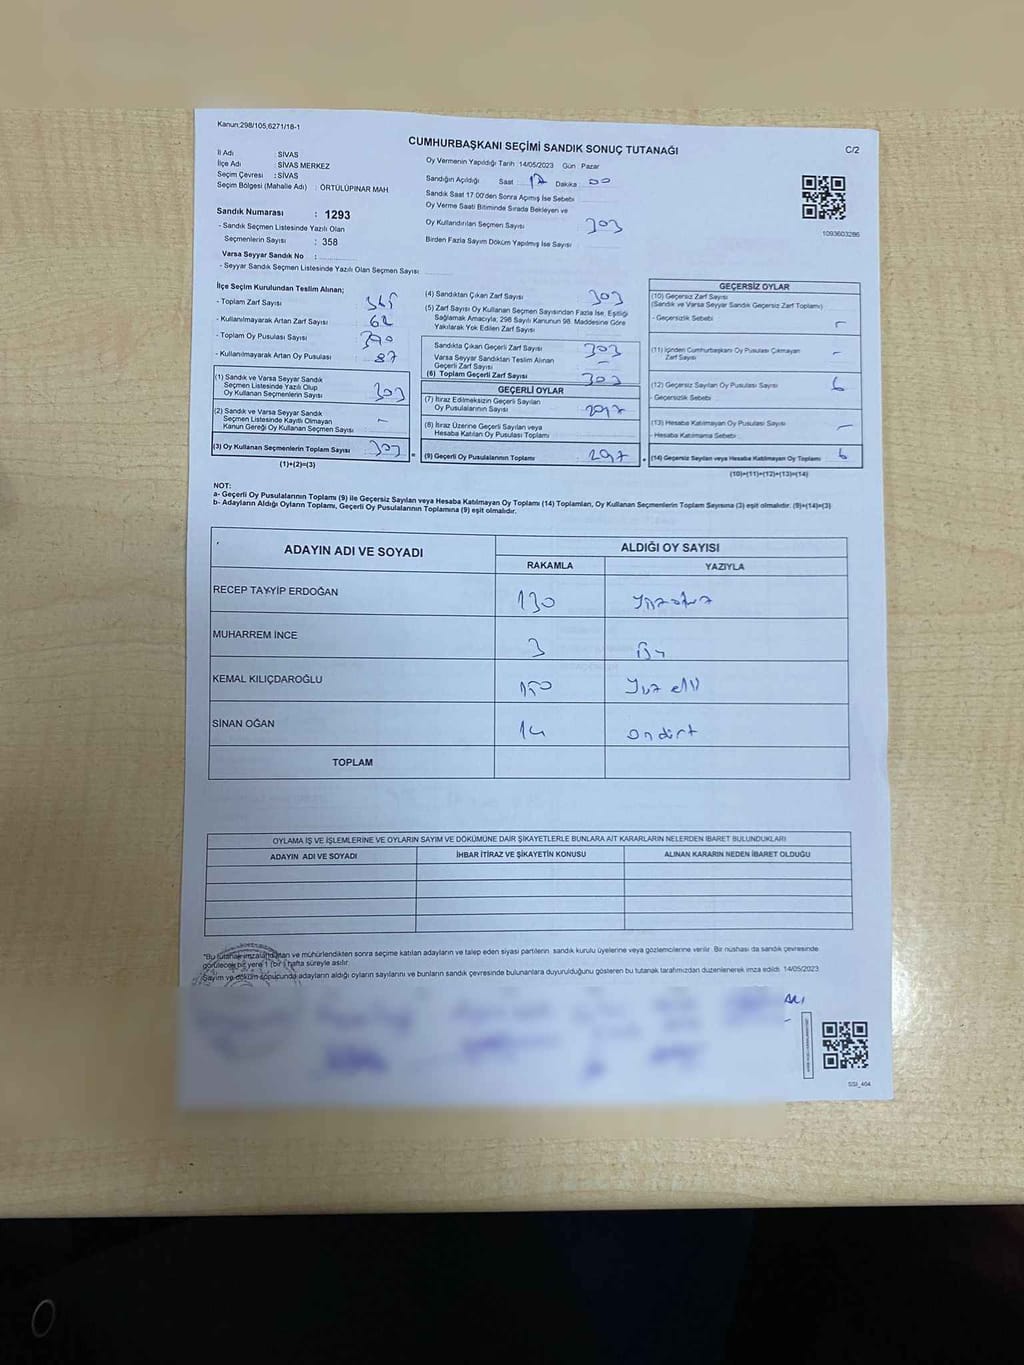 Kanun:298/105,6271/18-1
CUMHURBAŞKANI SEÇİMİ SANDIK SONUÇ TUTANAĞI
C/2
İl Adı : SİVAS
İlçe Adı : SİVAS MERKEZ
Seçim Çevresi : SİVAS
Seçim Bölgesi (Mahalle Adı) : ÖRTÜLÜPINAR MAH
Sandık Numarası : 1293
- Sandık Seçmen Listesinde Yazılı Olan
Seçmenlerin Sayısı : 358
Varsa Seyyar Sandık No :
- Seyyar Sandık Seçmen Listesinde Yazılı Olan Seçmen Sayısı
Oy Vermenin Yapıldığı Tarih :14/05/2023 Gün : Pazar
Sandığın Açıldığı Saat 17 Dakika 00
Sandık Saat 17:00'den Sonra Açımış İse Sebebi
Oy Verme Saati Bitiminde Sırada Bekleyen ve
Oy Kullandırılan Seçmen Sayısı 303
Birden Fazla Sayım Döküm Yapılmış İse Sayısı
1093603286
İlçe Seçim Kurulundan Teslim Alınan;
- Toplam Zarf Sayısı 365
- Kullanılmayarak Artan Zarf Sayısı 62
- Toplam Oy Pusulası Sayısı 390
- Kullanılmayarak Artan Oy Pusulası 87
(1) Sandık ve Varsa Seyyar Sandık
Seçmen Listesinde Yazılı Olup
Oy Kullanan Seçmenlerin Sayısı 303
(2) Sandık ve Varsa Seyyar Sandık
Seçmen Listesinde Kayıtlı Olmayan
Kanun Gereği Oy Kullanan Seçmen Sayısı -
(3) Oy Kullanan Seçmenlerin Toplam Sayısı 303
(1)+(2)=(3)
(4) Sandıktan Çıkan Zarf Sayısı 303
(5) Zarf Sayısı Oy Kullanan Seçmen Sayısından Fazla İse, Eşitliği
Sağlamak Amacıyla, 298 Sayılı Kanunun 98. Maddesine Göre
Yakılarak Yok Edilen Zarf Sayısı
Sandıkta Çıkan Geçerli Zarf Sayısı 303
Varsa Seyyar Sandıktan Teslim Alınan
Geçerli Zarf Sayısı -
(6) Toplam Geçerli Zarf Sayısı 303
GEÇERLİ OYLAR
(7) İtiraz Edilmeksizin Geçerli Sayılan
Oy Pusulalarının Sayısı 297
(8) İtiraz Üzerine Geçerli Sayılan veya
Hesaba Katılan Oy Pusulası Toplamı
(9) Geçerli Oy Pusulalarının Toplamı 297
GEÇERSİZ OYLAR
(10) Geçersiz Zarf Sayısı
(Sandık ve Varsa Seyyar Sandık Geçersiz Zarf Toplamı)
- Geçersizlik Sebebi -
(11) İçinden Cumhurbaşkanı Oy Pusulası Çıkmayan
Zarf Sayısı -
(12) Geçersiz Sayılan Oy Pusulası Sayısı 6
- Geçersizlik Sebebi
(13) Hesaba Katılmayan Oy Pusulası Sayısı -
- Hesaba Katılmama Sebebi
(14) Geçersiz Sayılan veya Hesaba Katılmayan Oy Toplamı 6
(10)+(11)+(12)+(13)=(14)
NOT:
a- Geçerli Oy Pusulalarının Toplamı (9) ile Geçersiz Sayılan veya Hesaba Katılmayan Oy Toplamı (14) Toplamları, Oy Kullanan Seçmenlerin Toplam Sayısına (3) eşit olmalıdır. (9)+(14)=(3)
b- Adayların Aldığı Oyların Toplamı, Geçerli Oy Pusulalarının Toplamına (9) eşit olmalıdır.
ADAYIN ADI VE SOYADI
ALDIĞI OY SAYISI
RAKAMLA YAZIYLA
RECEP TAYYİP ERDOĞAN 130 Yüzotuz
MUHARREM İNCE 3 Üç
KEMAL KILIÇDAROĞLU 150 Yüz elli
SİNAN OĞAN 14 ondört
TOPLAM
OYLAMA İŞ VE İŞLEMLERİNE VE OYLARIN SAYIM VE DÖKÜMÜNE DAİR ŞİKAYETLERLE BUNLARA AİT KARARLARIN NELERDEN İBARET BULUNDUKLARI
ADAYIN ADI VE SOYADI İHBAR İTİRAZ VE ŞİKAYETİN KONUSU ALINAN KARARIN NEDEN İBARET OLDUĞU
*Bu tutanak imzalandıktan ve mühürlendikten sonra seçime katılan adayların ve talep eden siyasi partilerin sandık kurulu üyelerine veya gözlemcilerine verilir. Bir nüshası da sandık çevresinde
görülecek bir yere 1 (bir) hafta süreyle asılır.
Sayım ve döküm sonucunda adayların aldığı oyların sayılarını ve bunların sandık çevresinde bulunanlara duyurulduğunu gösteren bu tutanak tarafımızdan düzenlenerek imza edildi. 14/05/2023
SSI_404